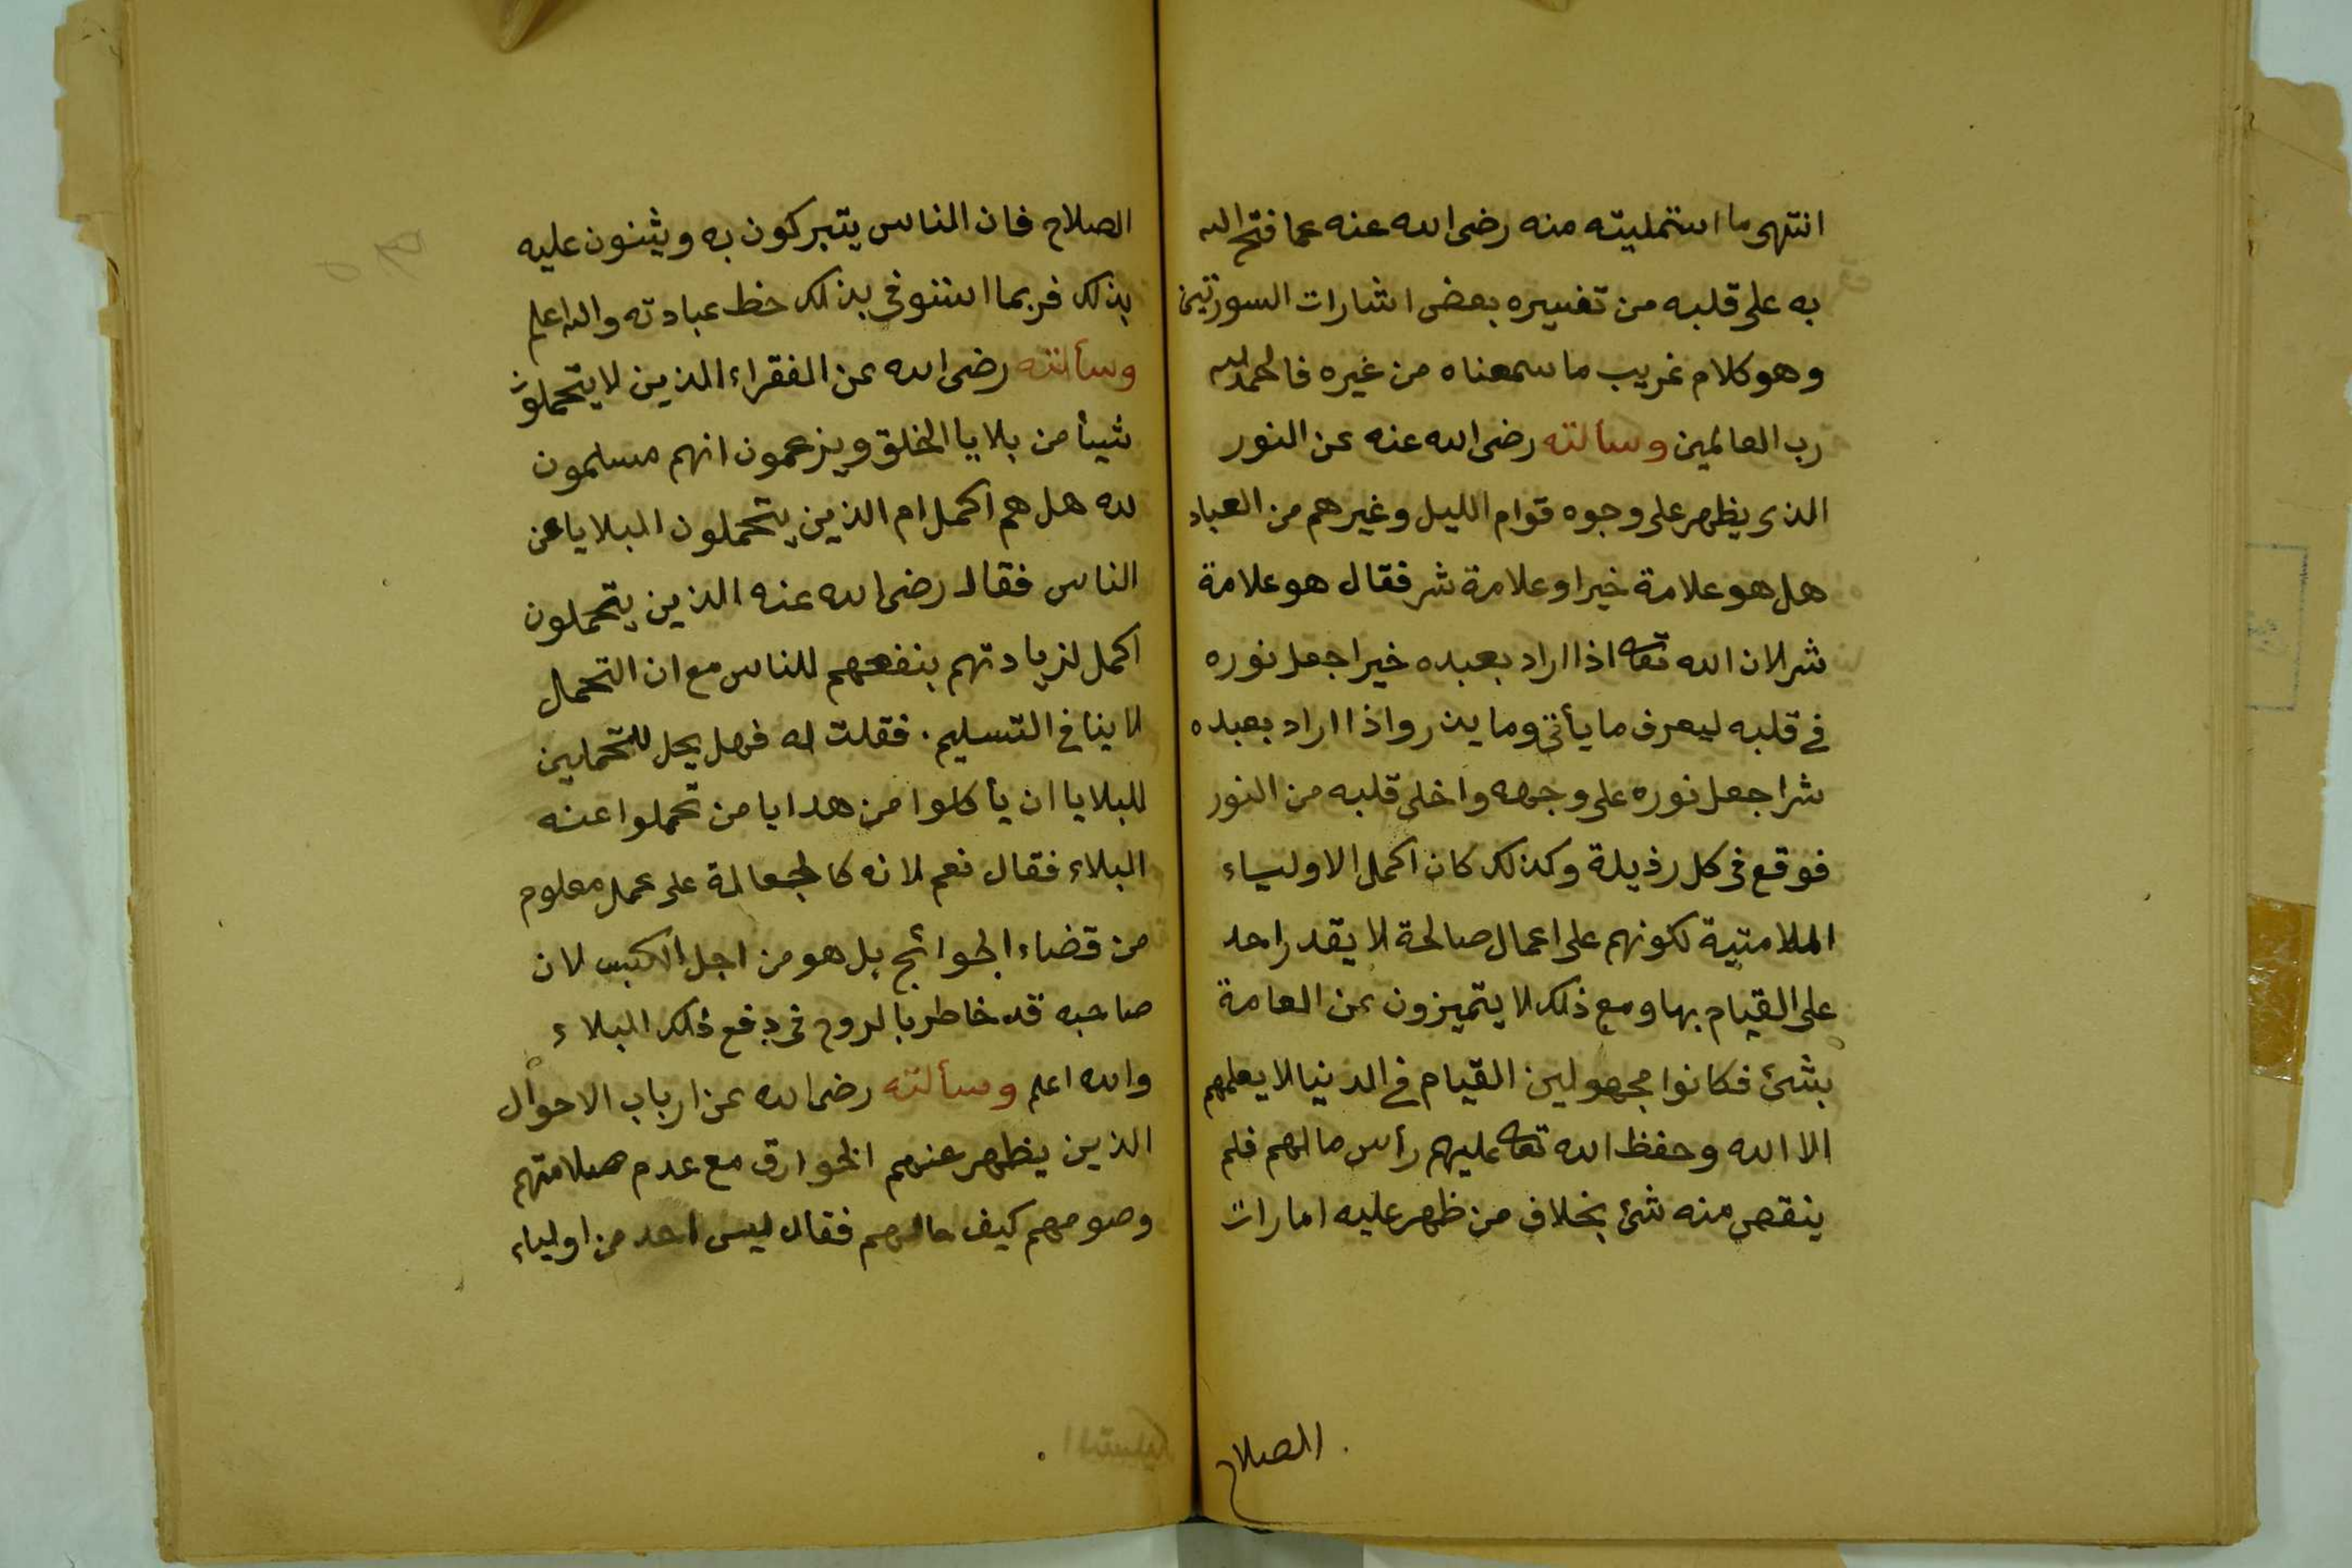 انتهى ما استمليته منه رضى الله عنه عما فتح الله
به على قلبه من تفسيره بعض اشارات السورتين
وهو كلام غريب ما سمعناه من غيره فالحمد لله
رب العالمين وسألته رضى الله عنه عن النور
الذى يظهر على وجوه قوام الليل وغيرهم من العباد
هل هو علامة خير او علامة شر فقال هو علامة
شر لان الله تعا اذا اراد بعبده خيرا جعل نوره
فى قلبه ليعرف ما يأتى وما يذر واذا اراد بعبده
شرا جعل نوره على وجهه واخلى قلبه من النور
فوقع فى كل رذيلة وكذلك كان اكمل الاولياء
الملامتية لكونهم على اعمال صالحة لا يقدر احد
على القيام بها ومع ذلك لا يتميزون عن العامة
بشئ فكانوا مجهولين القيام فى الدنيا لا يعلمهم
الا الله وحفظ الله تعا عليهم رأس مالهم فلم
ينقص منه شئ بخلاف من ظهر عليه امارات
الصلاح
الصلاح فان الناس يتبركون به ويثنون عليه
بذلك فربما استوفى بذلك حظ عبادته والله اعلم
وسألته رضى الله عن الفقراء الذين لا يتحملون
شيأ من بلايا الخلق ويزعمون انهم مسلمون
لله هل هم اكمل ام الذين يتحملون البلايا عن
الناس فقال رضى الله عنه الذين يتحملون
اكمل لزيادتهم بنفعهم للناس مع ان التحمل
لا ينافى التسليم . فقلت له فهل يحل للمتحملين
للبلايا ان يأكلوا من هدايا من تحملوا عنه
البلاء فقال نعم لانه كالجعالة على عمل معلوم
من قضاء الحوائج بل هو من اجل الكسب لان
صاحبه قد خاطر بالروح فى دفع ذلك البلاء
والله اعلم وسألته رضى الله عن ارباب الاحوال
الذين يظهر عنهم الخوارق مع عدم صلاتهم
وصومهم كيف حالهم فقال ليس احد من اولياء